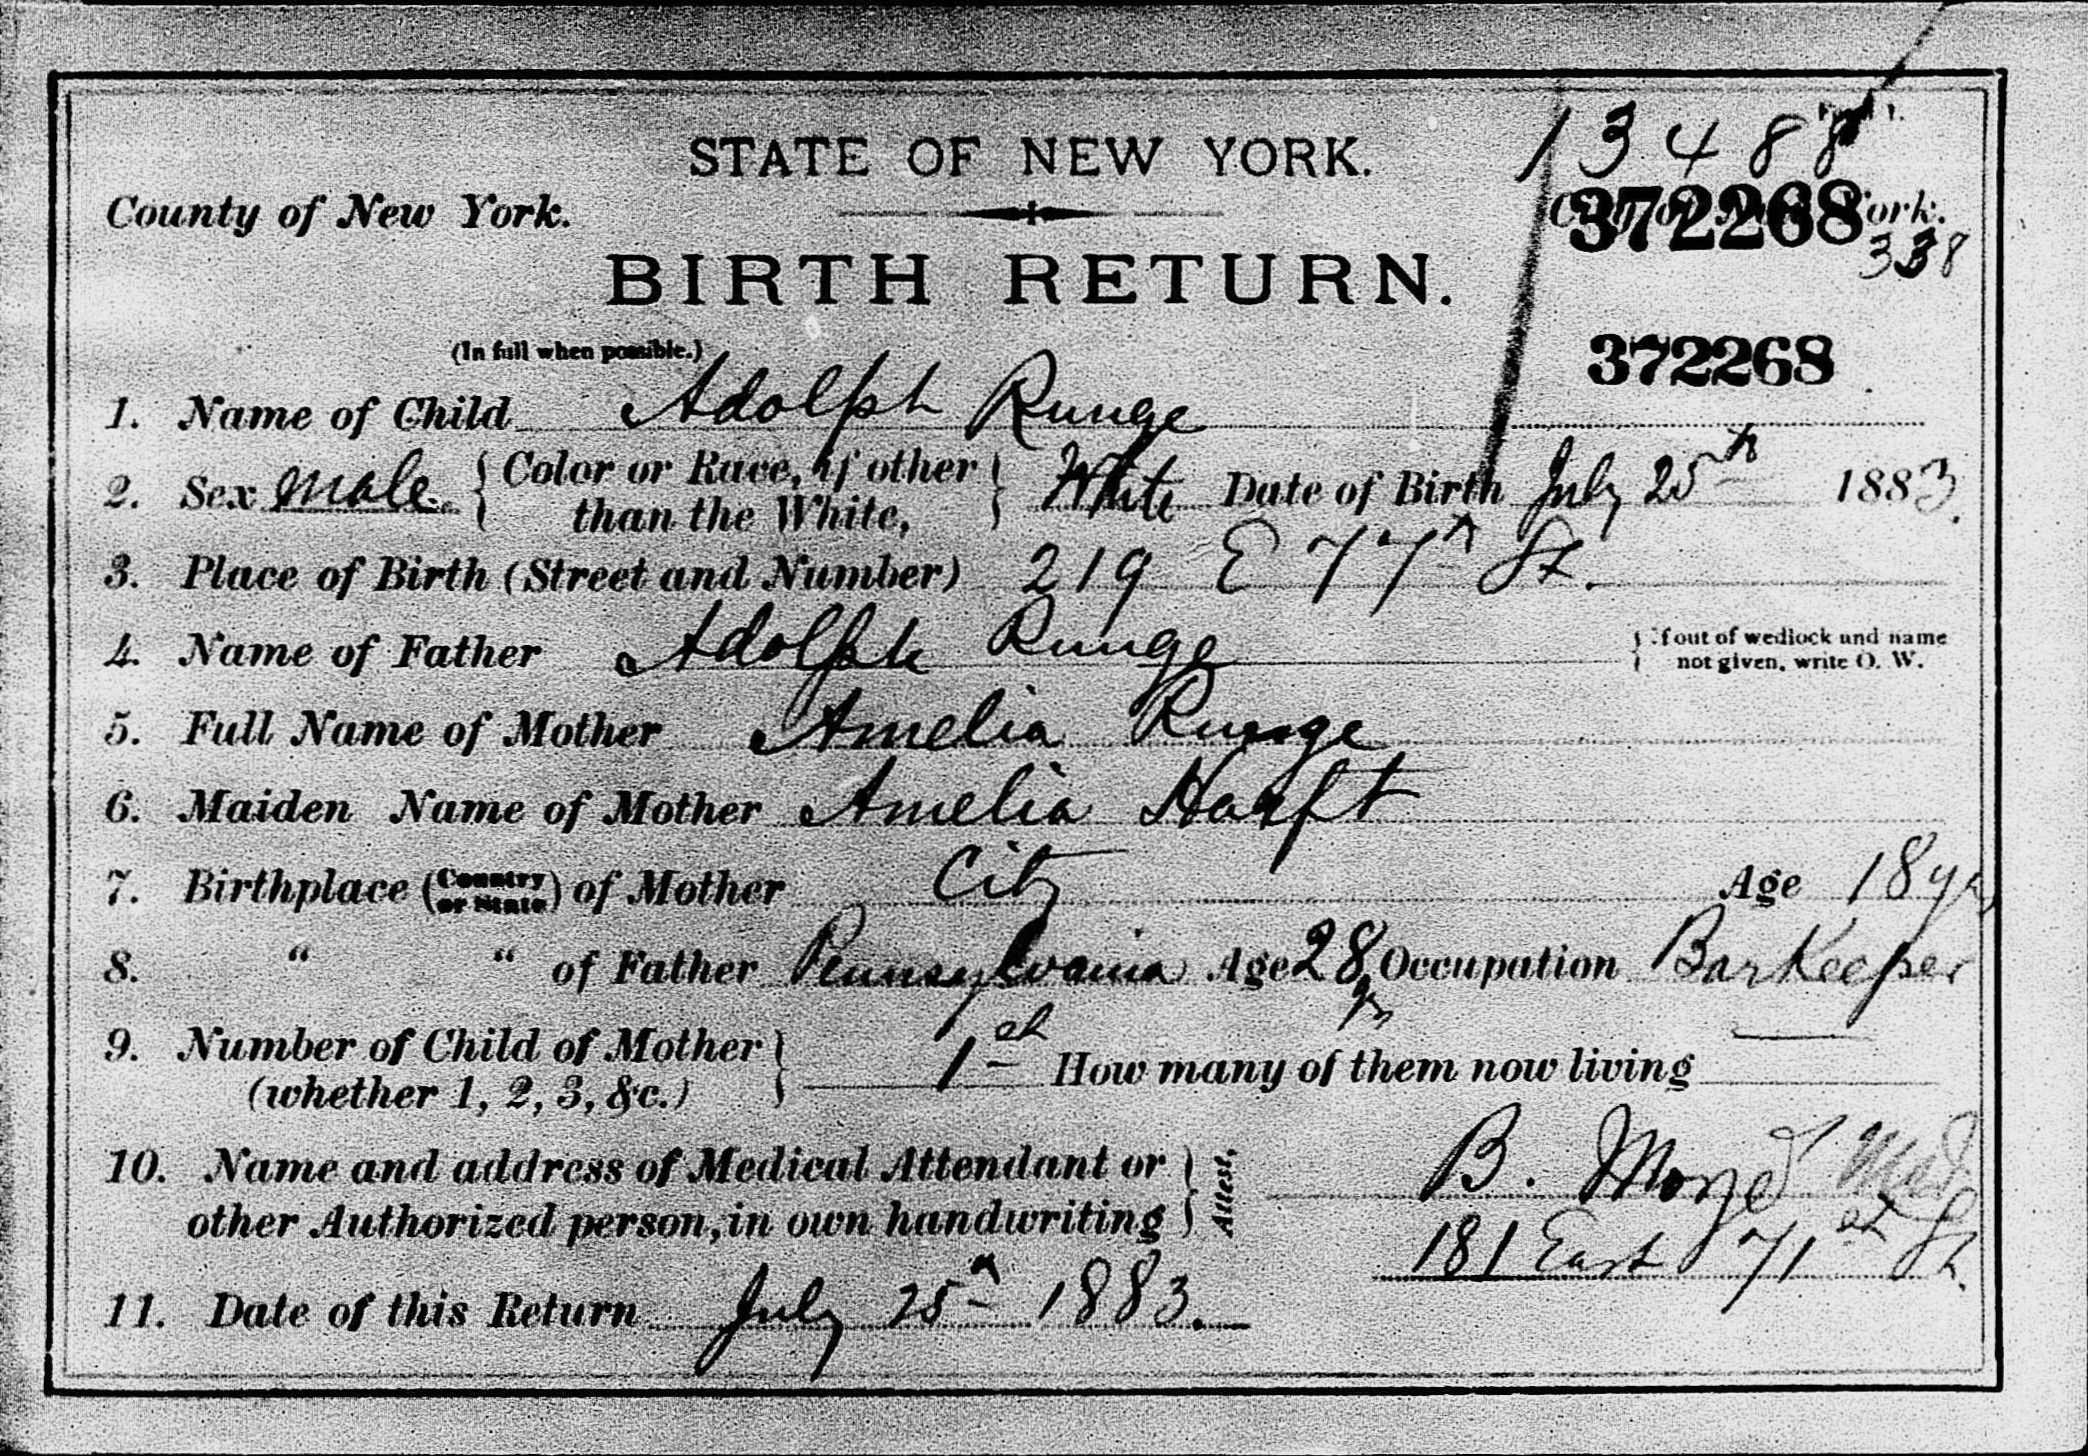 13488
STATE OF NEW YORK.
County of New York.
372268 York.
338
BIRTH RETURN.
372268
(In full when possible.)
1. Name of Child Adolph Runge
2. Sex male. { Color or Race, if other than the White, } White Date of Birth July 25th 1883.
3. Place of Birth (Street and Number) 219 E 77th St.
4. Name of Father Adolph Runge { If out of wedlock and name not given, write O. W.
5. Full Name of Mother Amelia Runge
6. Maiden Name of Mother Amelia
7. Birthplace (Country or State) of Mother City Age 18 yrs
8. " " of Father Pennsylvania Age 28 yrs Occupation Barkeeper
9. Number of Child of Mother (whether 1, 2, 3, &c.) } 1st How many of them now living
10. Name and address of Medical Attendant or } Attest, B.
other Authorized person, in own handwriting } 181 East 71st St.
11. Date of this Return July 25th 1883.